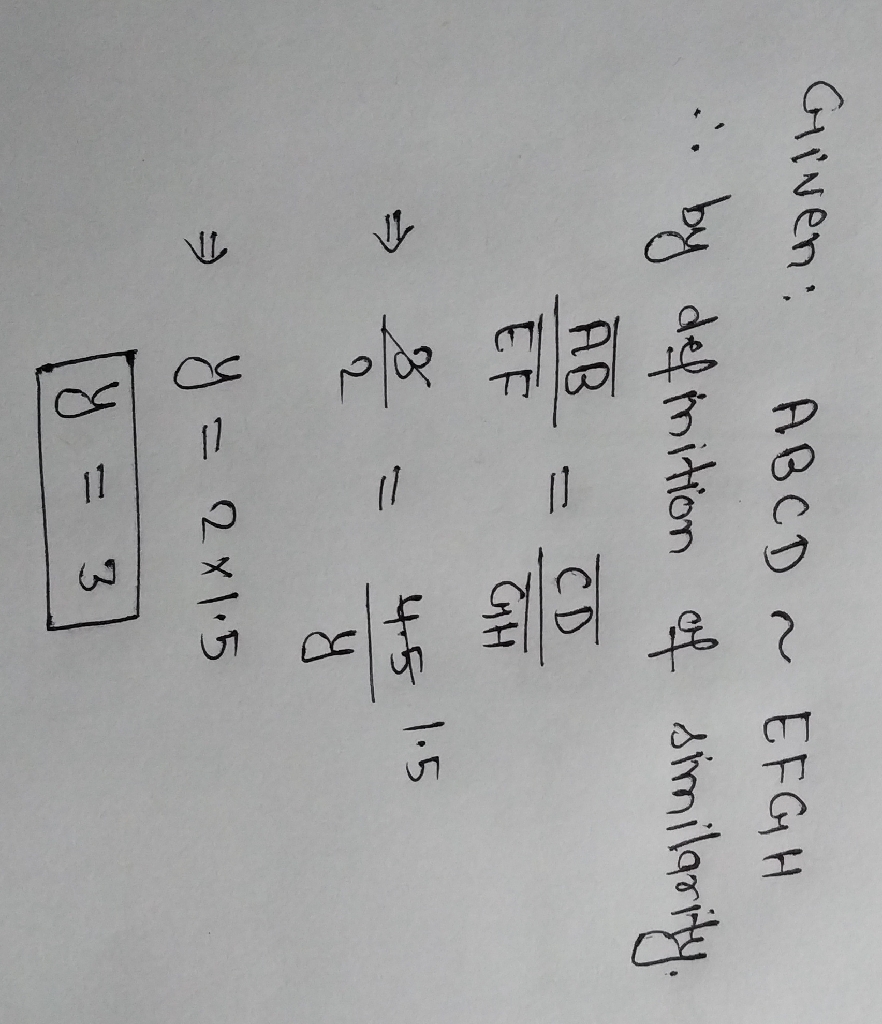 Given: ABCD ~ EFGH
∴ by definition of similarity.
AB/EF = CD/GH
⇒ 3/2 = 4.5/y 1.5
⇒ y = 2 × 1.5
y = 3